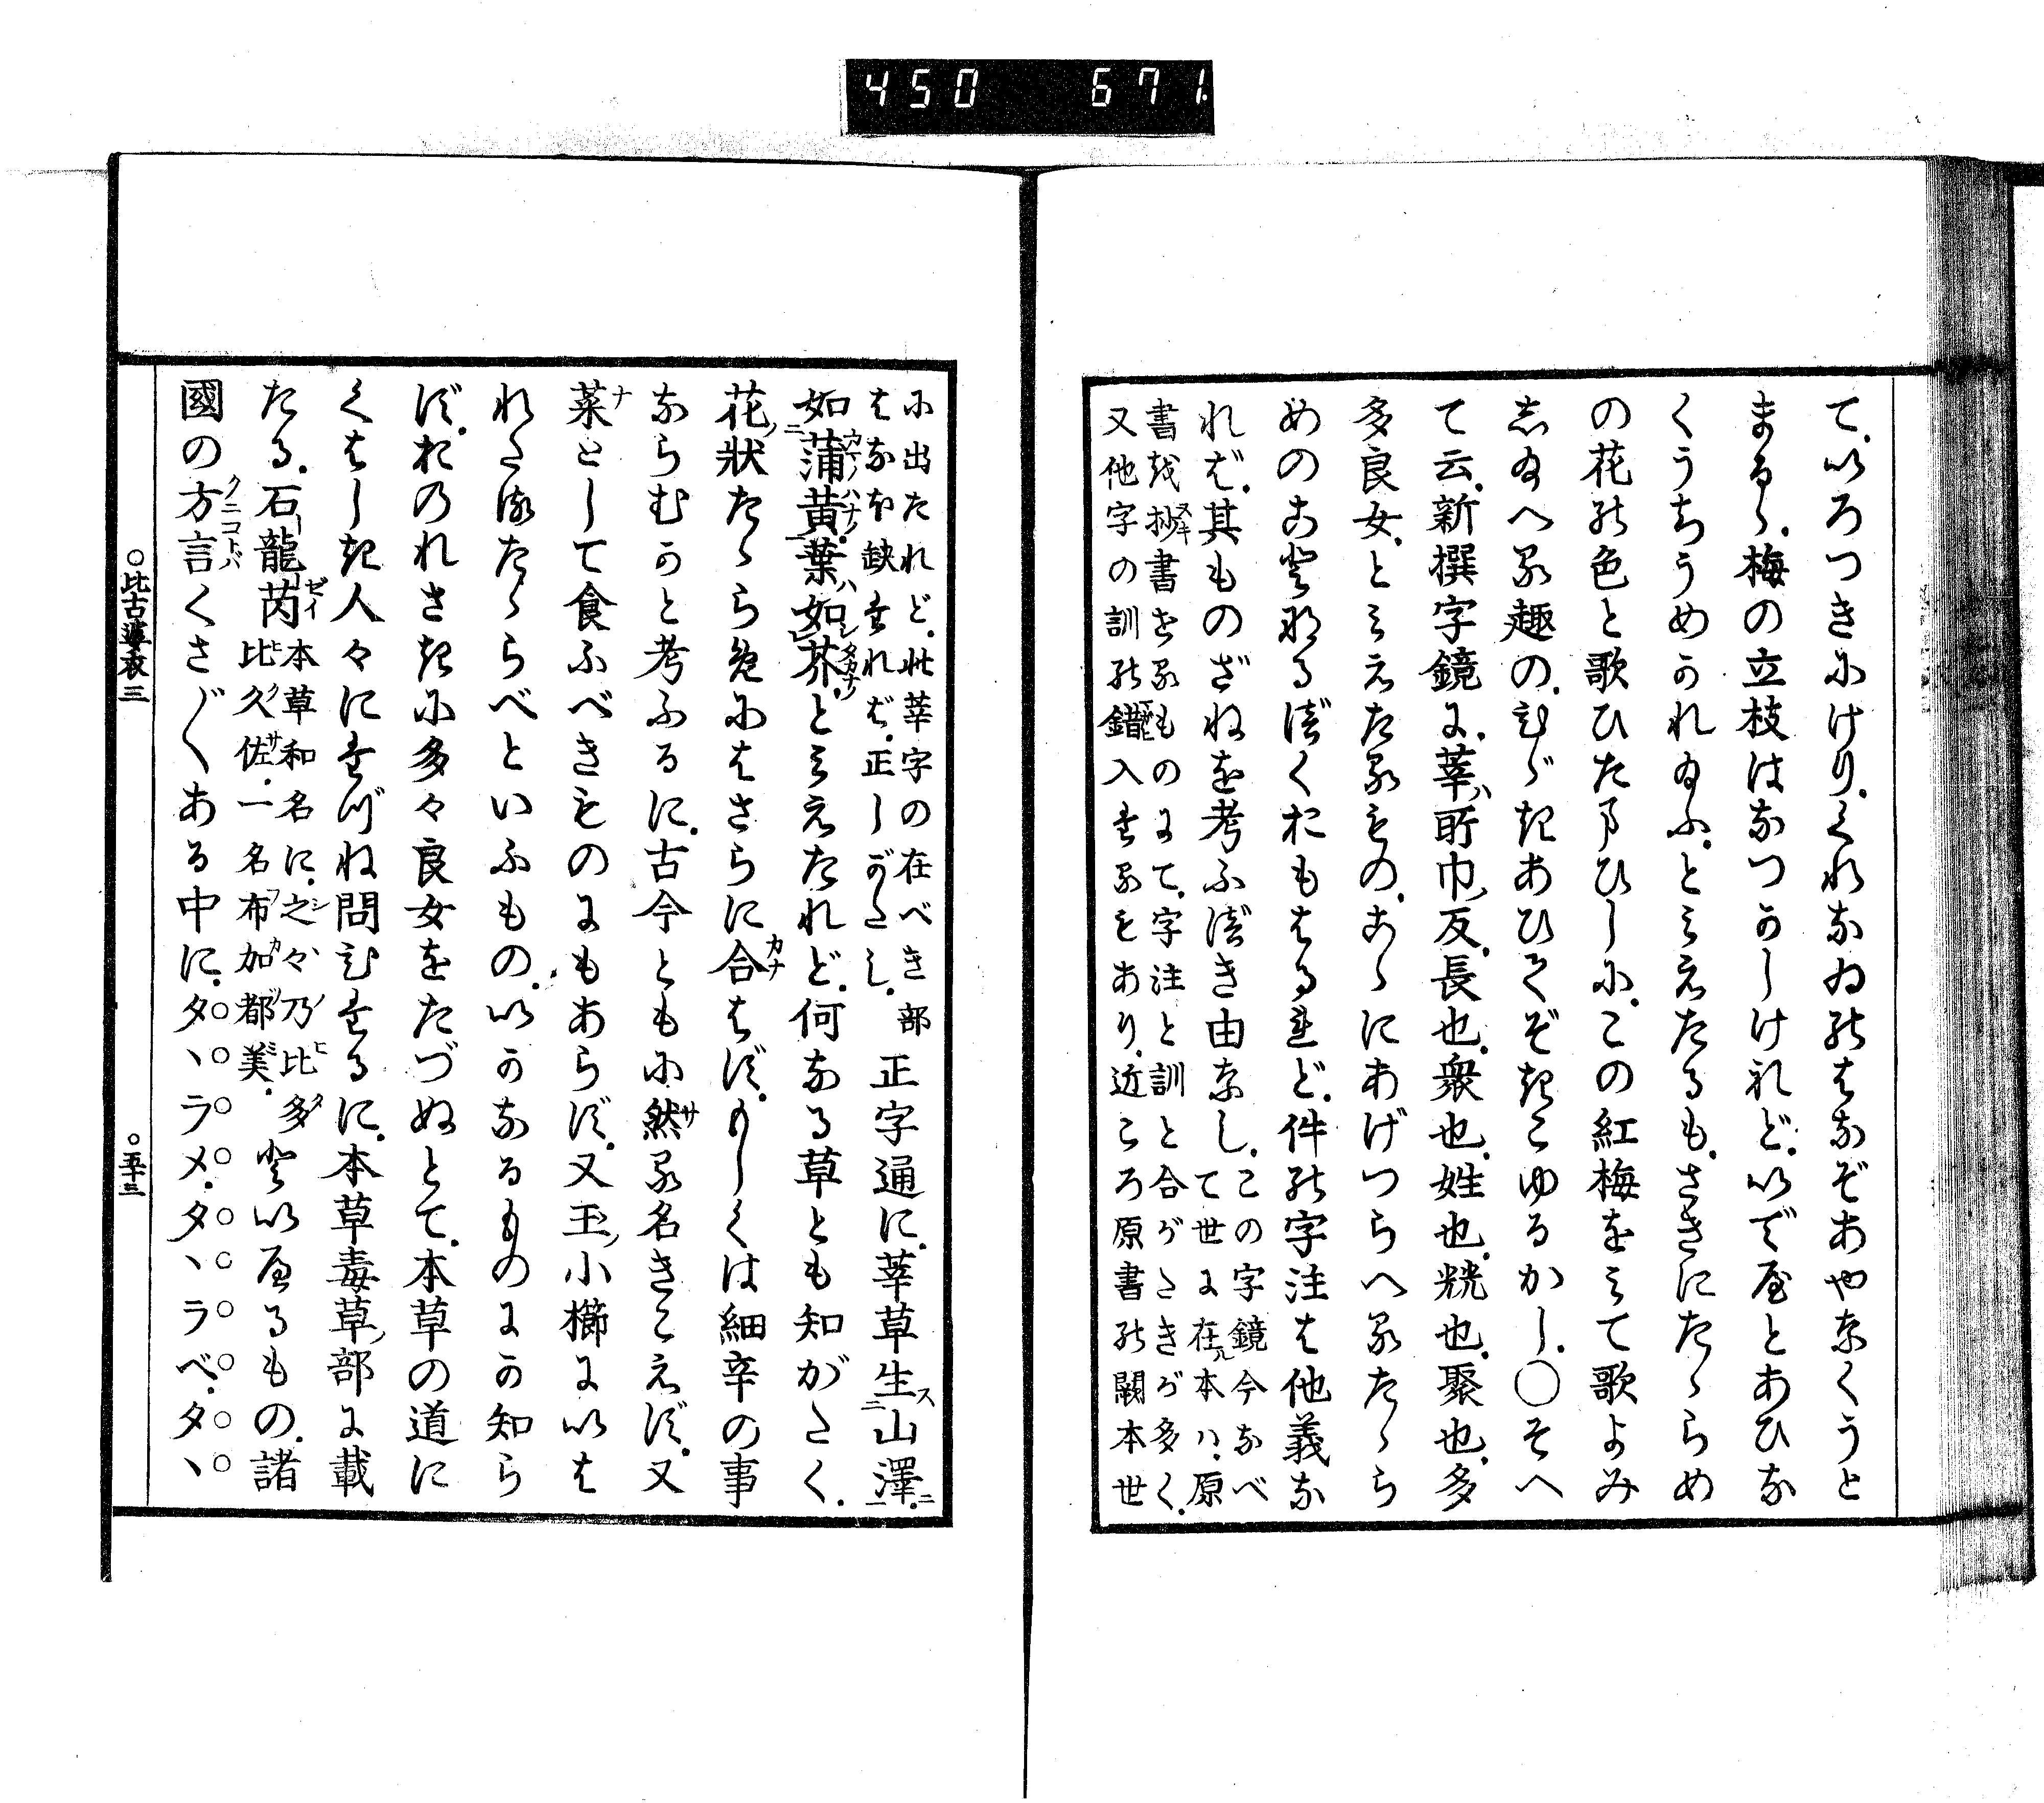 450 671
て、いろつきにけり、くれなゐのはなぞあやなくうと
まるゝ、梅の立枝はなつかしけれど、いでやとあひな
くうちうめかれ給ふ、とみえたるも、さきにたゝらめ
の花の色と歌ひたまひしに、この紅梅をみて歌よみ
し給へる趣の、むげきあひてぞきこゆるかし、○そへ
て云、新撰字鏡に、莘ハ所巾ノ反、長也、衆也、姓也、㲝也、聚也、多
多良女、とみえたるもの、あゝにあげつらへるたゝら
めのことなるべくおもはるれど、件の字注は他義な
れば、其ものざねを考ふべき由なし、この字鏡今なべ
て世に在ル本ハ、原
書を抄書せるものにて、字注と訓と合がたきが多く、
又他字の訓の錯入せるもあり、近ころ原書の闕本世
に出たれど、此莘字の在べき部
はなほ缺たれば、正しがたし、正字通に、莘草生ス山澤ニ、
如蒲黄ノ葉ハ如シ芥、とみえたれど、何なる草とも知がたく、
花ノ狀たゝら免にはさらに合はず、もしくは細辛の事
ならむかと考ふるに、古今ともに然る名きこえず、又
菜として食ふべきものにもあらず、又玉ノ小櫛にいは
れたるたゝらべといふもの、いかなるものにか知ら
ず、おのれさきに多々良女をたづぬとて、本草の道に
くはしき人々にたづね問むたるに、本草毒草ノ部に載
たる、石龍芮本草和名に、之々乃比多
比久佐、一名布加都美、といへるもの、諸
國の方言くさ〴〵ある中に、タヽラメ、タヽラベ、タヽ
○比古婆衣三 ○五十三